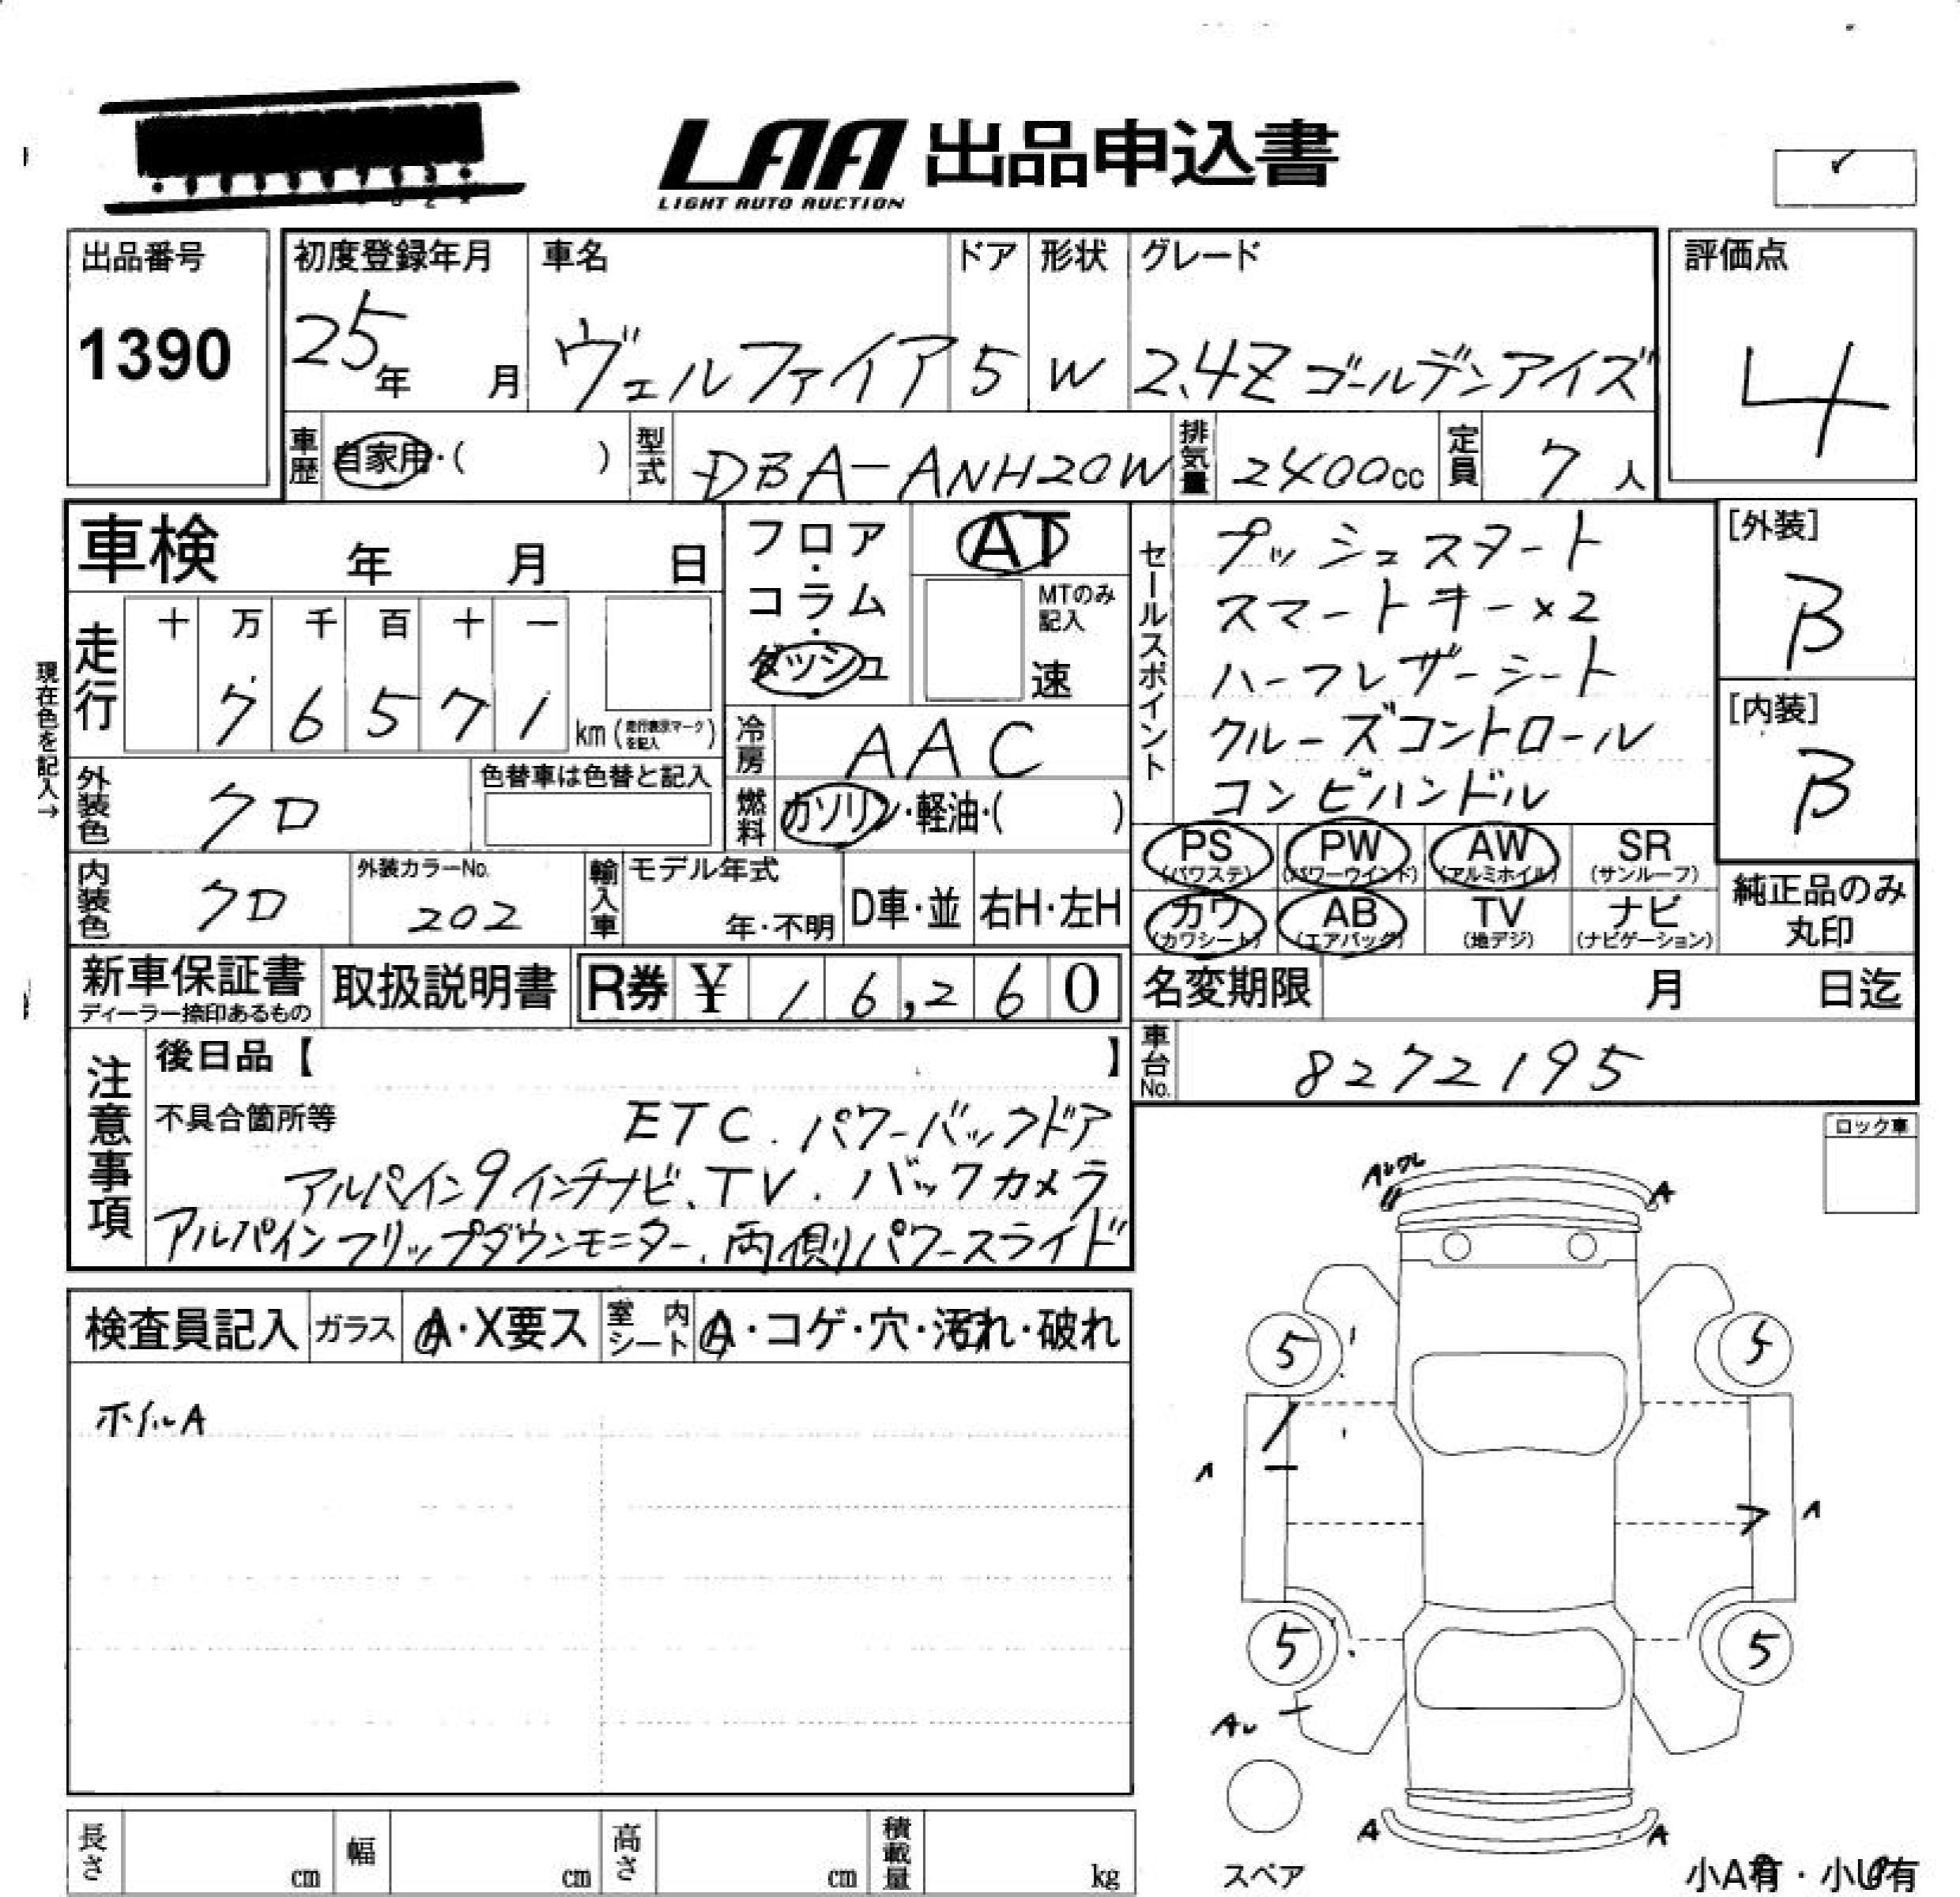 LAA 出品申込書
LIGHT AUTO AUCTION
出品番号
1390
初度登録年月
25年 月
車名
ヴェルファイア
ドア
5
形状
W
グレード
2.4Z ゴールデンアイズ
評価点
4
車歴 自家用・( )
型式 DBA-ANH20W
排気量 2400cc
定員 7人
車検 年 月 日
フロア・コラム・ダッシュ
AT
MTのみ記入
速
セールスポイント
プッシュスタート
スマートキー×2
ハーフレザーシート
クルーズコントロール
コンビハンドル
[外装]
B
[内装]
B
現在色を記入→
走行
十 万 千 百 十 一
7 6 5 7 1 km(走行表示マークを記入)
冷房 AAC
外装色 クロ
色替車は色替と記入
燃料 ガソリン・軽油・( )
内装色 クロ
外装カラーNo.
202
輸入車 モデル年式
年・不明
D車・並 右H・左H
PS (パワステ) PW (パワーウインド) AW (アルミホイル) SR (サンルーフ)
カワ (カワシート) AB (エアバック) TV (地デジ) ナビ (ナビゲーション)
純正品のみ
丸印
新車保証書
ディーラー捺印あるもの
取扱説明書
R券 ¥ 16,260
名変期限 月 日迄
車台No. 8272195
注意事項
後日品【 】
不具合箇所等 ETC.パワーバックドア
アルパイン9インチナビ.TV.バックカメラ
アルパインフリップダウンモニター.両側パワースライド
ロック車
検査員記入 ガラス A・X要ス 室内シート A・コゲ・穴・汚れ・破れ
ホイルA
A
5 5
A A
5 5
A A
スペア
小A有・小U有
長さ cm 幅 cm 高さ cm 積載量 kg